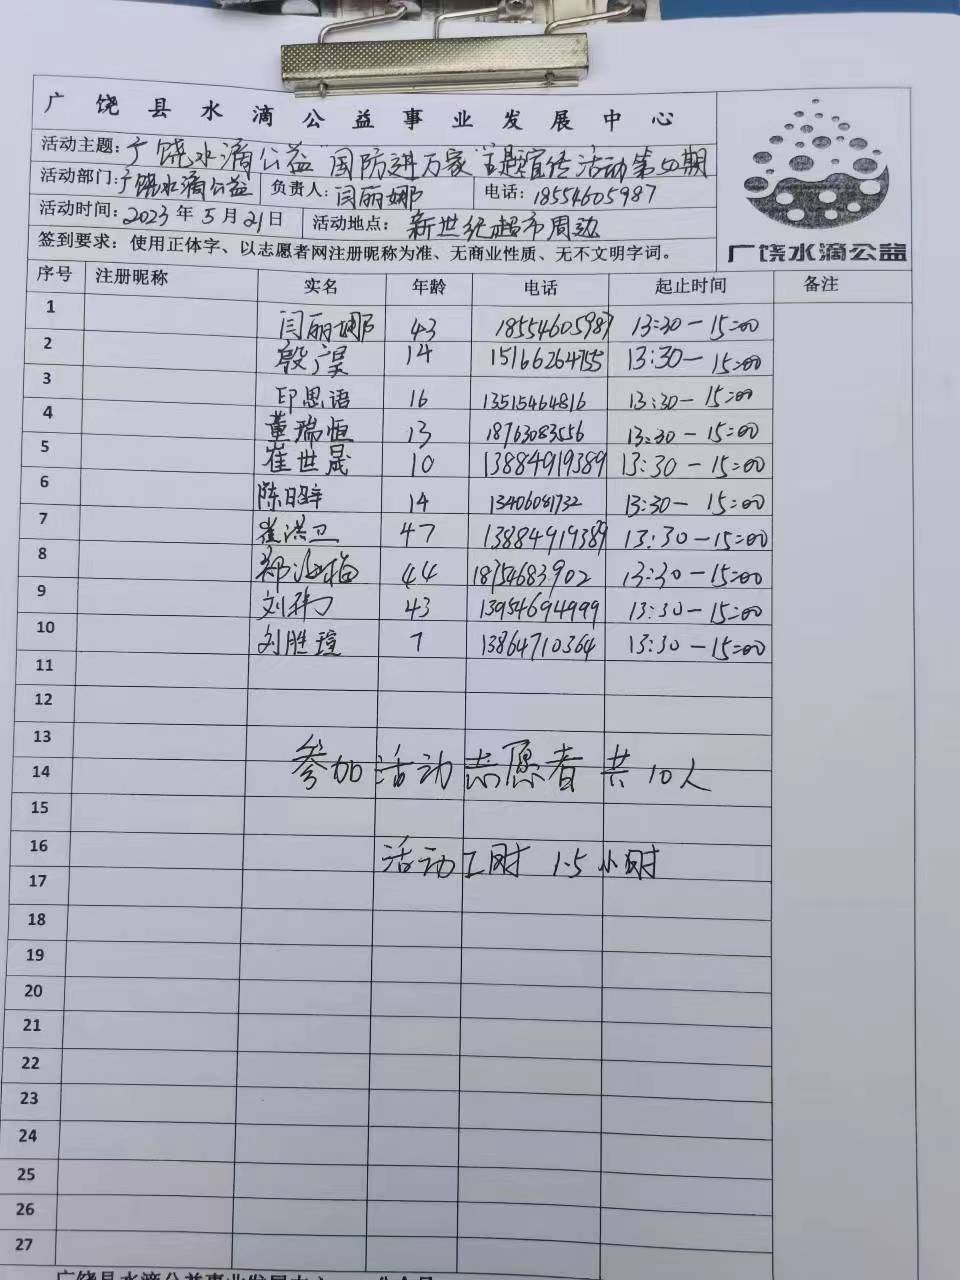 广饶县水滴公益事业发展中心
活动主题:广饶水滴公益"国防进万家"主题宣传活动第四期
活动部门:广饶水滴公益 负责人:闫丽娜 电话:18554605987
活动时间:2023年5月21日 活动地点:新世纪超市周边
签到要求:使用正体字、以志愿者网注册昵称为准、无商业性质、无不文明字词。
广饶水滴公益
序号 注册昵称 实名 年龄 电话 起止时间 备注
1 闫丽娜 43 18554605987 13:30-15:00
2 殷广昊 14 15166264755 13:30-15:00
3 印思语 16 13515464816 13:30-15:00
4 董瑞恒 13 18763083556 13:30-15:00
5 崔世晟 10 13884919389 13:30-15:00
6 陈 14 13406081732 13:30-15:00
7 崔洪卫 47 13884919389 13:30-15:00
8 郑海梅 44 18754683902 13:30-15:00
9 刘 43 13954694999 13:30-15:00
10 刘胜瑄 7 13864710364 13:30-15:00
11
12
13
参加活动志愿者共10人
14
15
16
活动工时 1.5小时
17
18
19
20
21
22
23
24
25
26
27
广饶县水滴公益事业发展中心